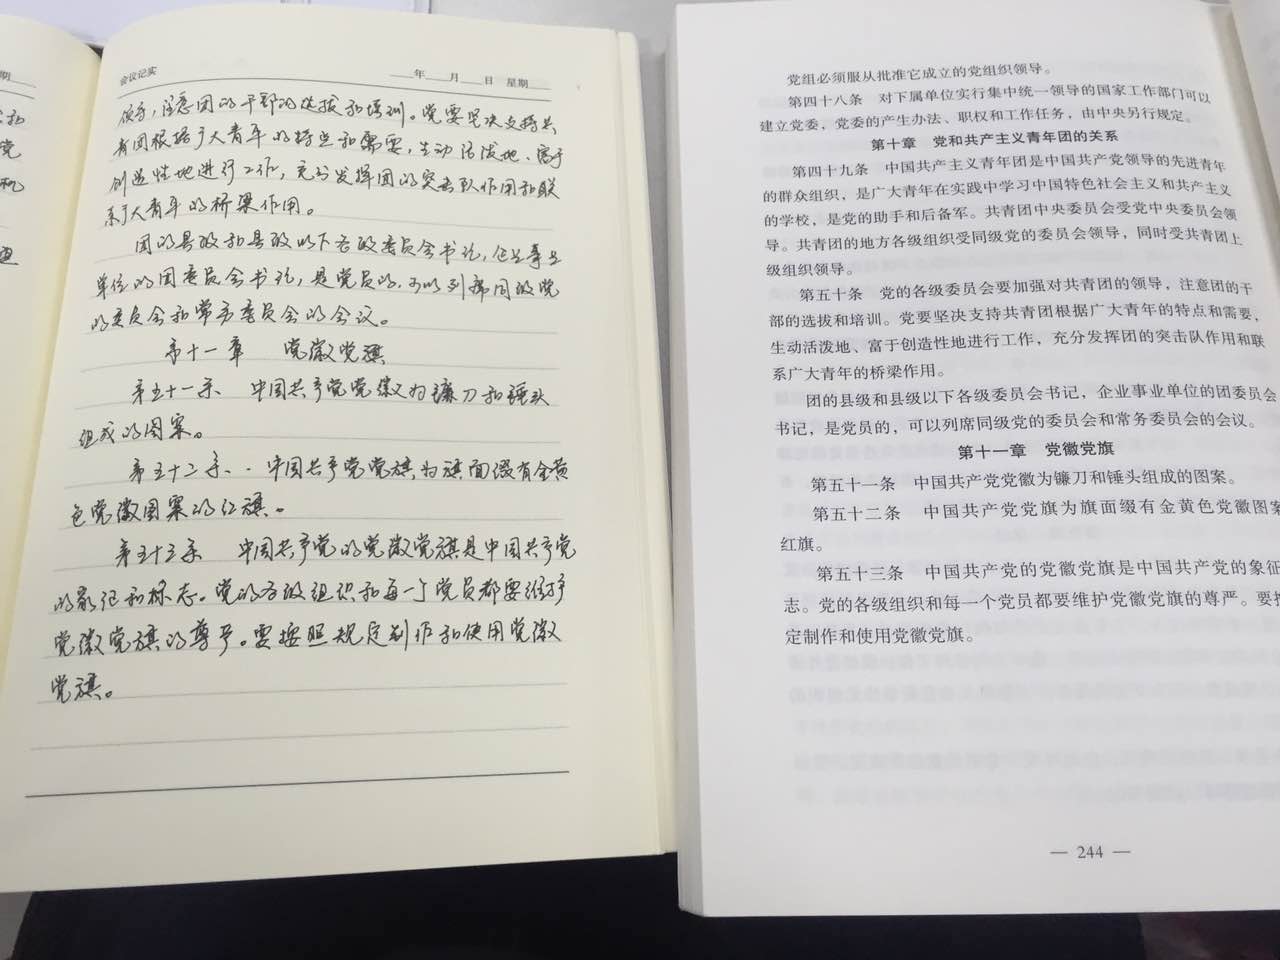 期
和
党
机
会议记实
年 月 日 星期
领导，注意团的干部的选拔和培训。党要坚决支持共
青团根据广大青年的特点和需要，生动活泼地、富于
创造性地进行工作，充分发挥团的突击队作用和联
系广大青年的桥梁作用。
团的县级和县级以下各级委员会书记，企业事业
单位的团委员会书记，是党员的，可以列席同级党
的委员会和常务委员会的会议。
第十一章 党徽党旗
第五十一条 中国共产党党徽为镰刀和锤头
组成的图案。
第五十二条 中国共产党党旗为旗面缀有金黄
色党徽图案的红旗。
第五十三条 中国共产党的党徽党旗是中国共产党
的象征和标志。党的各级组织和每一个党员都要维护
党徽党旗的尊严。要按照规定制作和使用党徽
党旗。
党组必须服从批准它成立的党组织领导。
第四十八条 对下属单位实行集中统一领导的国家工作部门可以
建立党委，党委的产生办法、职权和工作任务，由中央另行规定。
第十章 党和共产主义青年团的关系
第四十九条 中国共产主义青年团是中国共产党领导的先进青年
的群众组织，是广大青年在实践中学习中国特色社会主义和共产主义
的学校，是党的助手和后备军。共青团中央委员会受党中央委员会领
导。共青团的地方各级组织受同级党的委员会领导，同时受共青团上
级组织领导。
第五十条 党的各级委员会要加强对共青团的领导，注意团的干
部的选拔和培训。党要坚决支持共青团根据广大青年的特点和需要，
生动活泼地、富于创造性地进行工作，充分发挥团的突击队作用和联
系广大青年的桥梁作用。
团的县级和县级以下各级委员会书记，企业事业单位的团委员会
书记，是党员的，可以列席同级党的委员会和常务委员会的会议。
第十一章 党徽党旗
第五十一条 中国共产党党徽为镰刀和锤头组成的图案。
第五十二条 中国共产党党旗为旗面缀有金黄色党徽图案
红旗。
第五十三条 中国共产党的党徽党旗是中国共产党的象征
志。党的各级组织和每一个党员都要维护党徽党旗的尊严。要按
定制作和使用党徽党旗。
— 244 —